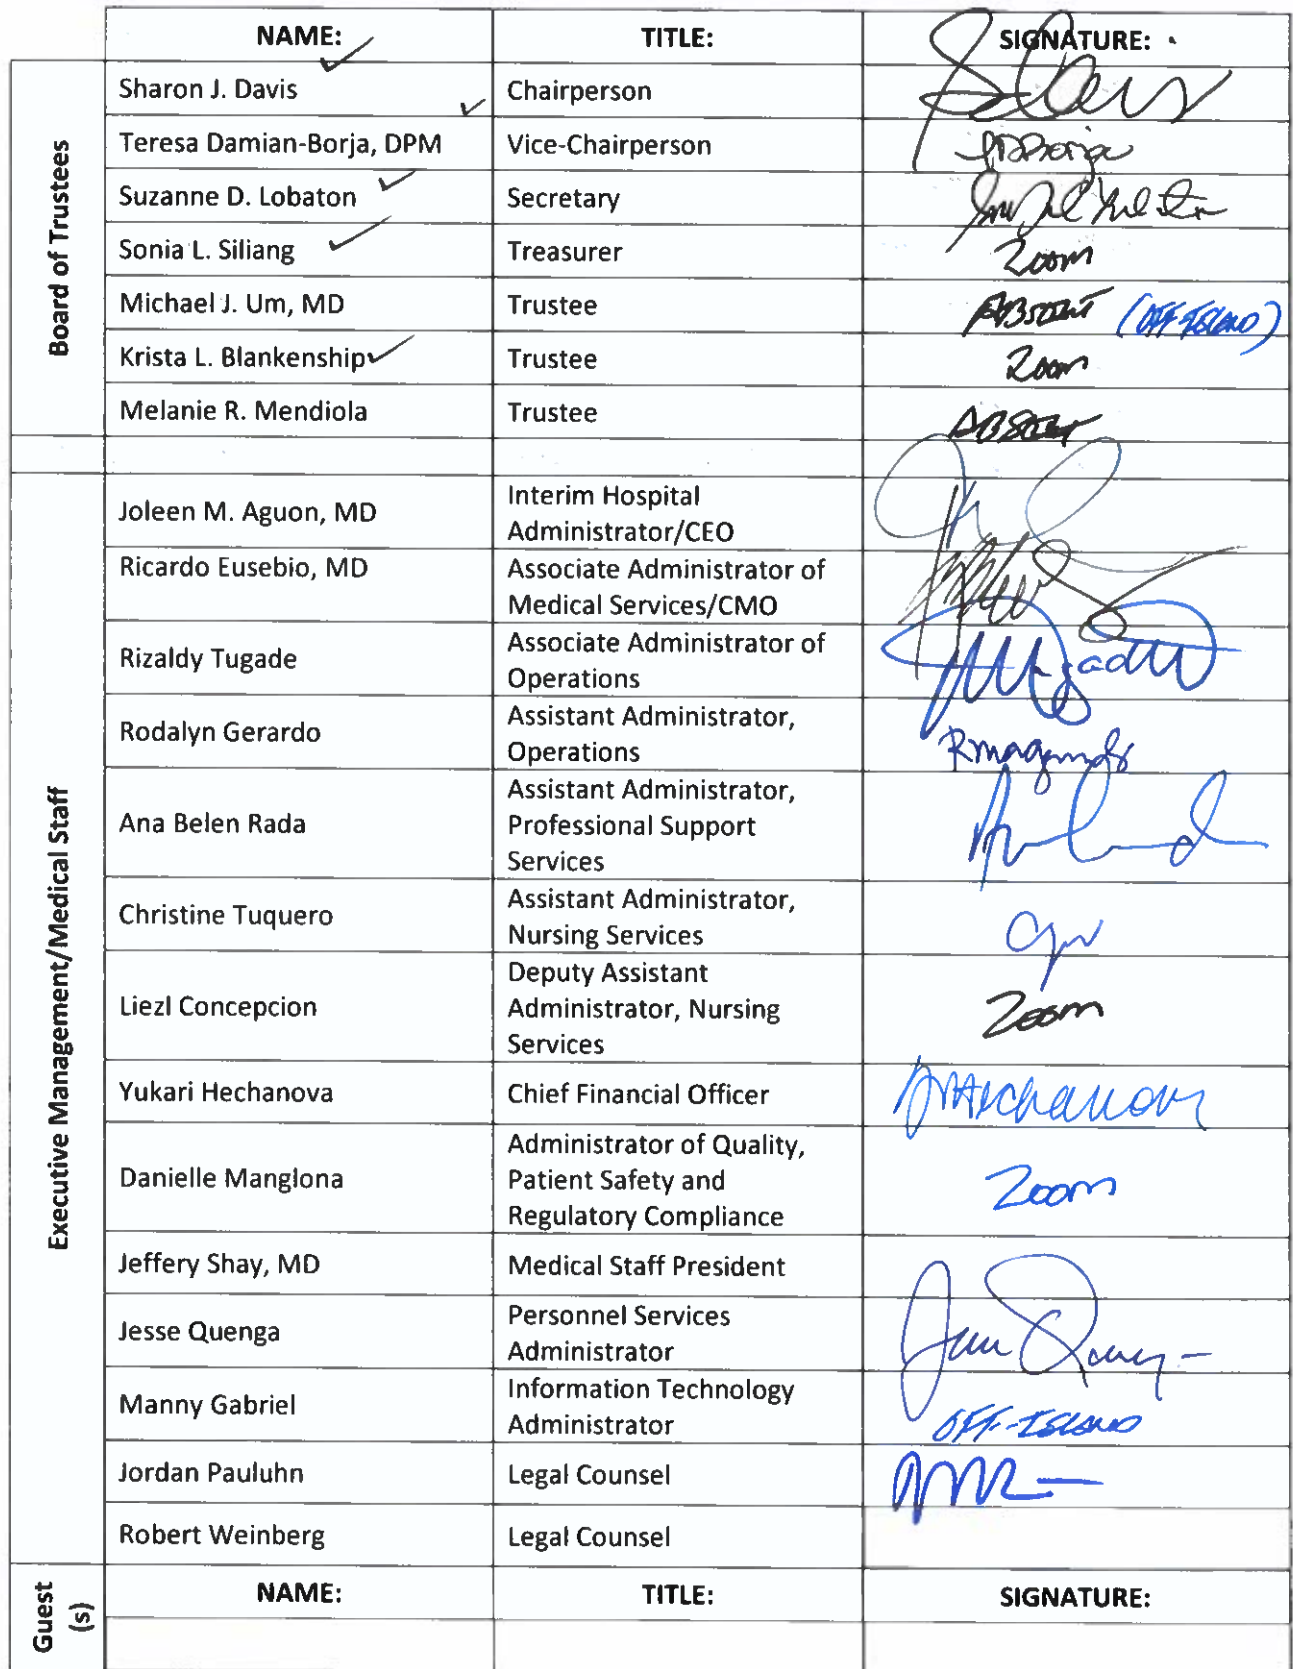 NAME: TITLE: SIGNATURE:
Board of Trustees
Sharon J. Davis Chairperson
Teresa Damian-Borja, DPM Vice-Chairperson
Suzanne D. Lobaton Secretary
Sonia L. Siliang Treasurer Zoom
Michael J. Um, MD Trustee ABSENT (OFF-ISLAND)
Krista L. Blankenship Trustee Zoom
Melanie R. Mendiola Trustee ABSENT
Executive Management/Medical Staff
Joleen M. Aguon, MD Interim Hospital
Administrator/CEO
Ricardo Eusebio, MD Associate Administrator of
Medical Services/CMO
Rizaldy Tugade Associate Administrator of
Operations
Rodalyn Gerardo Assistant Administrator,
Operations
Ana Belen Rada Assistant Administrator,
Professional Support
Services
Christine Tuquero Assistant Administrator,
Nursing Services
Liezl Concepcion Deputy Assistant
Administrator, Nursing
Services
Zoom
Yukari Hechanova Chief Financial Officer
Danielle Manglona Administrator of Quality,
Patient Safety and
Regulatory Compliance
Zoom
Jeffery Shay, MD Medical Staff President
Jesse Quenga Personnel Services
Administrator
Manny Gabriel Information Technology
Administrator
OFF-ISLAND
Jordan Pauluhn Legal Counsel
Robert Weinberg Legal Counsel
Guest
(s)
NAME: TITLE: SIGNATURE: